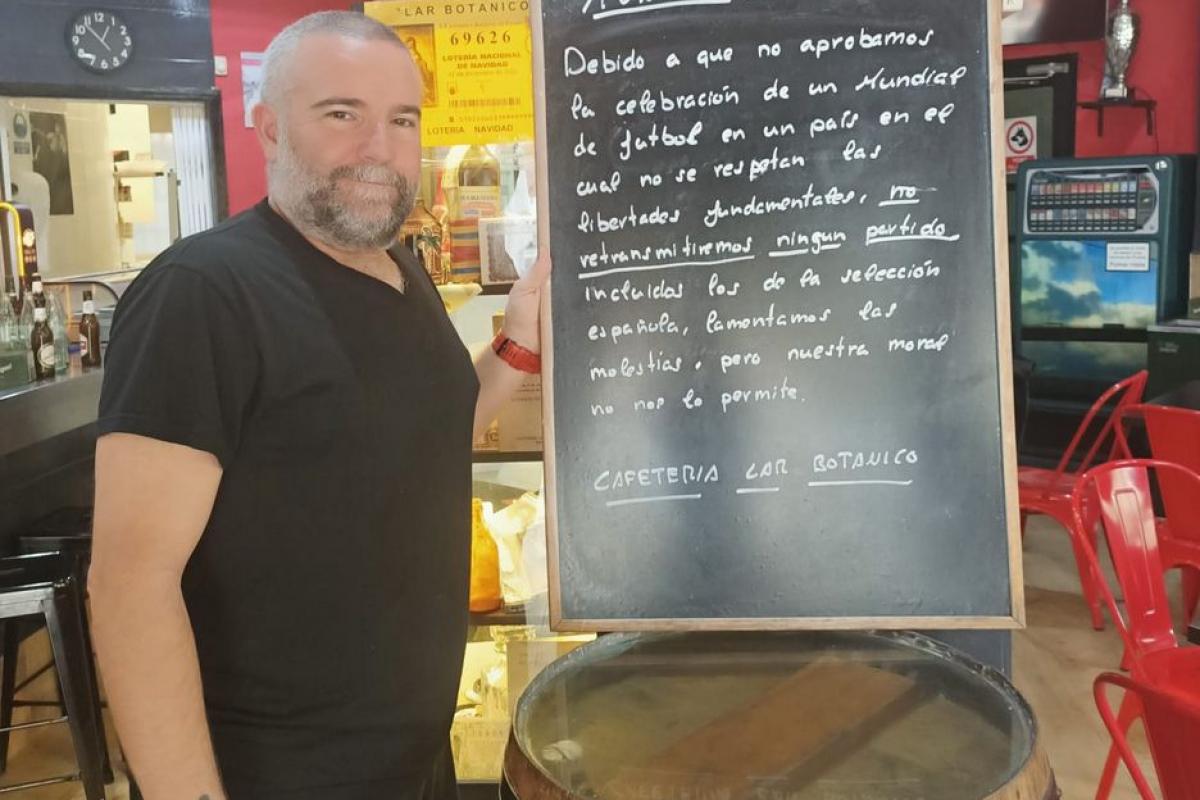 LAR BOTANICO
69626
LOTERIA NACIONAL
DE NAVIDAD
LOTERIA NAVIDAD
Debido a que no aprobamos
la celebración de un Mundial
de futbol en un país en el
cual no se respetan las
libertades fundamentales, no
retransmitiremos ningun partido
incluidos los de la selección
española, lamentamos las
molestias, pero nuestra moral
no nos lo permite.
CAFETERIA LAR BOTANICO